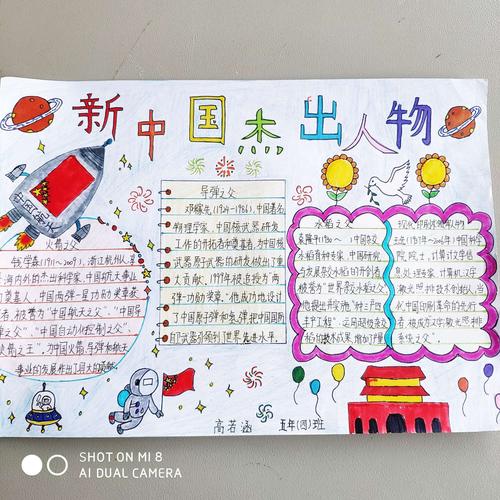 新中国杰出人物
中国航天
火箭之父
钱学森(1911~2009),浙江杭州人。
海内外的杰出科学家,中国航天事业
的奠基人,中国两弹一星功勋奖章获
者,被誉为"中国航天之父","中国导
弹之父","中国自动化控制之父",
"火箭之王",为中国火箭、导弹和航天
事业的发展作出了巨大的贡献。
导弹之父
邓稼先(1924-1986),中国著名
物理学家,中国核武器研发
工作的开拓者和奠基者,为中国核
武器原子武器的研发做出了重
大贡献,1999年被追授为"两
弹一功勋奖章。"他成功地设计
了中国原子弹和氢弹,把中国国防
自卫武器引领到了世界先进水平。
水稻之父
袁隆平(1930~ ),中国杂交
水稻育种专家,中国研究
与发展杂交水稻的开创者,
被誉为"世界杂交水稻之父"。
他提出并实施"种三产四
丰产工程",运用超级杂交
稻的技术成果,
(1937年~2006年),中国科学
院院士,计算机文字信
息处理专家,计算机汉字
激光照排技术创始人,当
代中国印刷革命的先行
者,被成为汉字激光照排
系统之父"。
高若涵 五年(四)班
SHOT ON MI 8
AI DUAL CAMERA